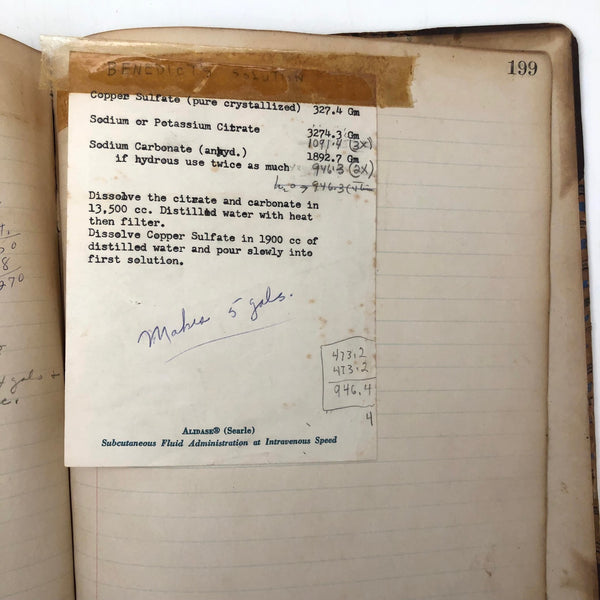 199
BENEDICT'S SOLUTION
Copper Sulfate (pure crystallized) 327.4 Gm
Sodium or Potassium Citrate 3274.3 Gm
1091.4 (3x)
Sodium Carbonate (anhyd.) 1892.7 Gm
if hydrous use twice as much 946.3 (2x)
946.3
Dissolve the citrate and carbonate in
13,500 cc. Distilled water with heat
then filter.
Dissolve Copper Sulfate in 1900 cc of
distilled water and pour slowly into
first solution.
Makes 5 gals.
473.2
473.2
946.4
4
ALIDASE® (Searle)
Subcutaneous Fluid Administration at Intravenous Speed
8
270
gals